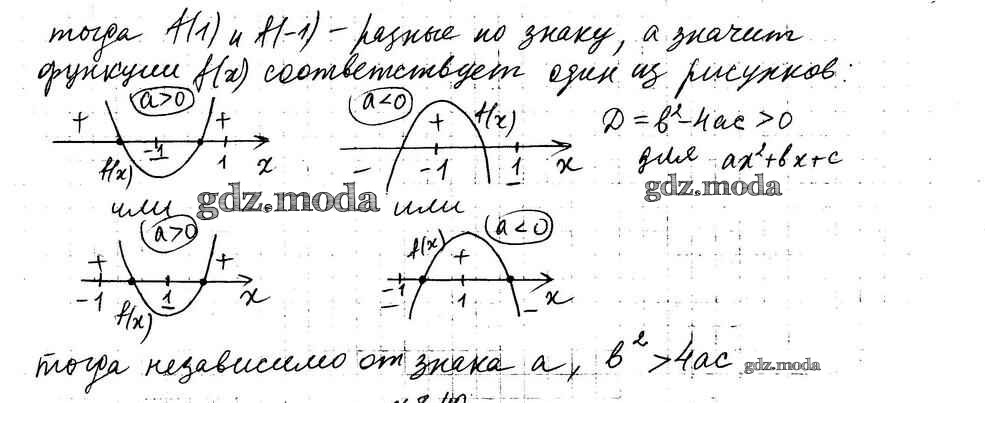 тогда f(1) и f(-1) - разные по знаку, а значит
функции f(x) соответствует один из рисунков:
a>0
a<0
+ + + f(x)
D = b²-4ac >0
-1 1 x - -1 1 x
f(x)
для ax²+bx+c
или gdz.moda или gdz.moda
a>0
a<0
+ + f(x) +
-1 1 x -1 1 x
f(x) - -
тогда независимо от знака a, b² >4ac gdz.moda